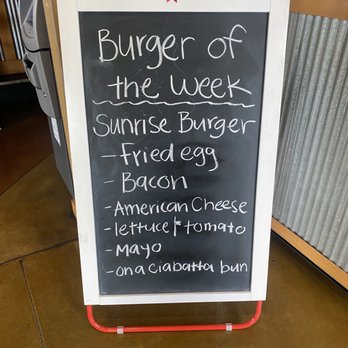 Burger of
the Week
Sunrise Burger
- Fried egg
- Bacon
- American Cheese
- lettuce & tomato
- Mayo
- on a ciabatta bun